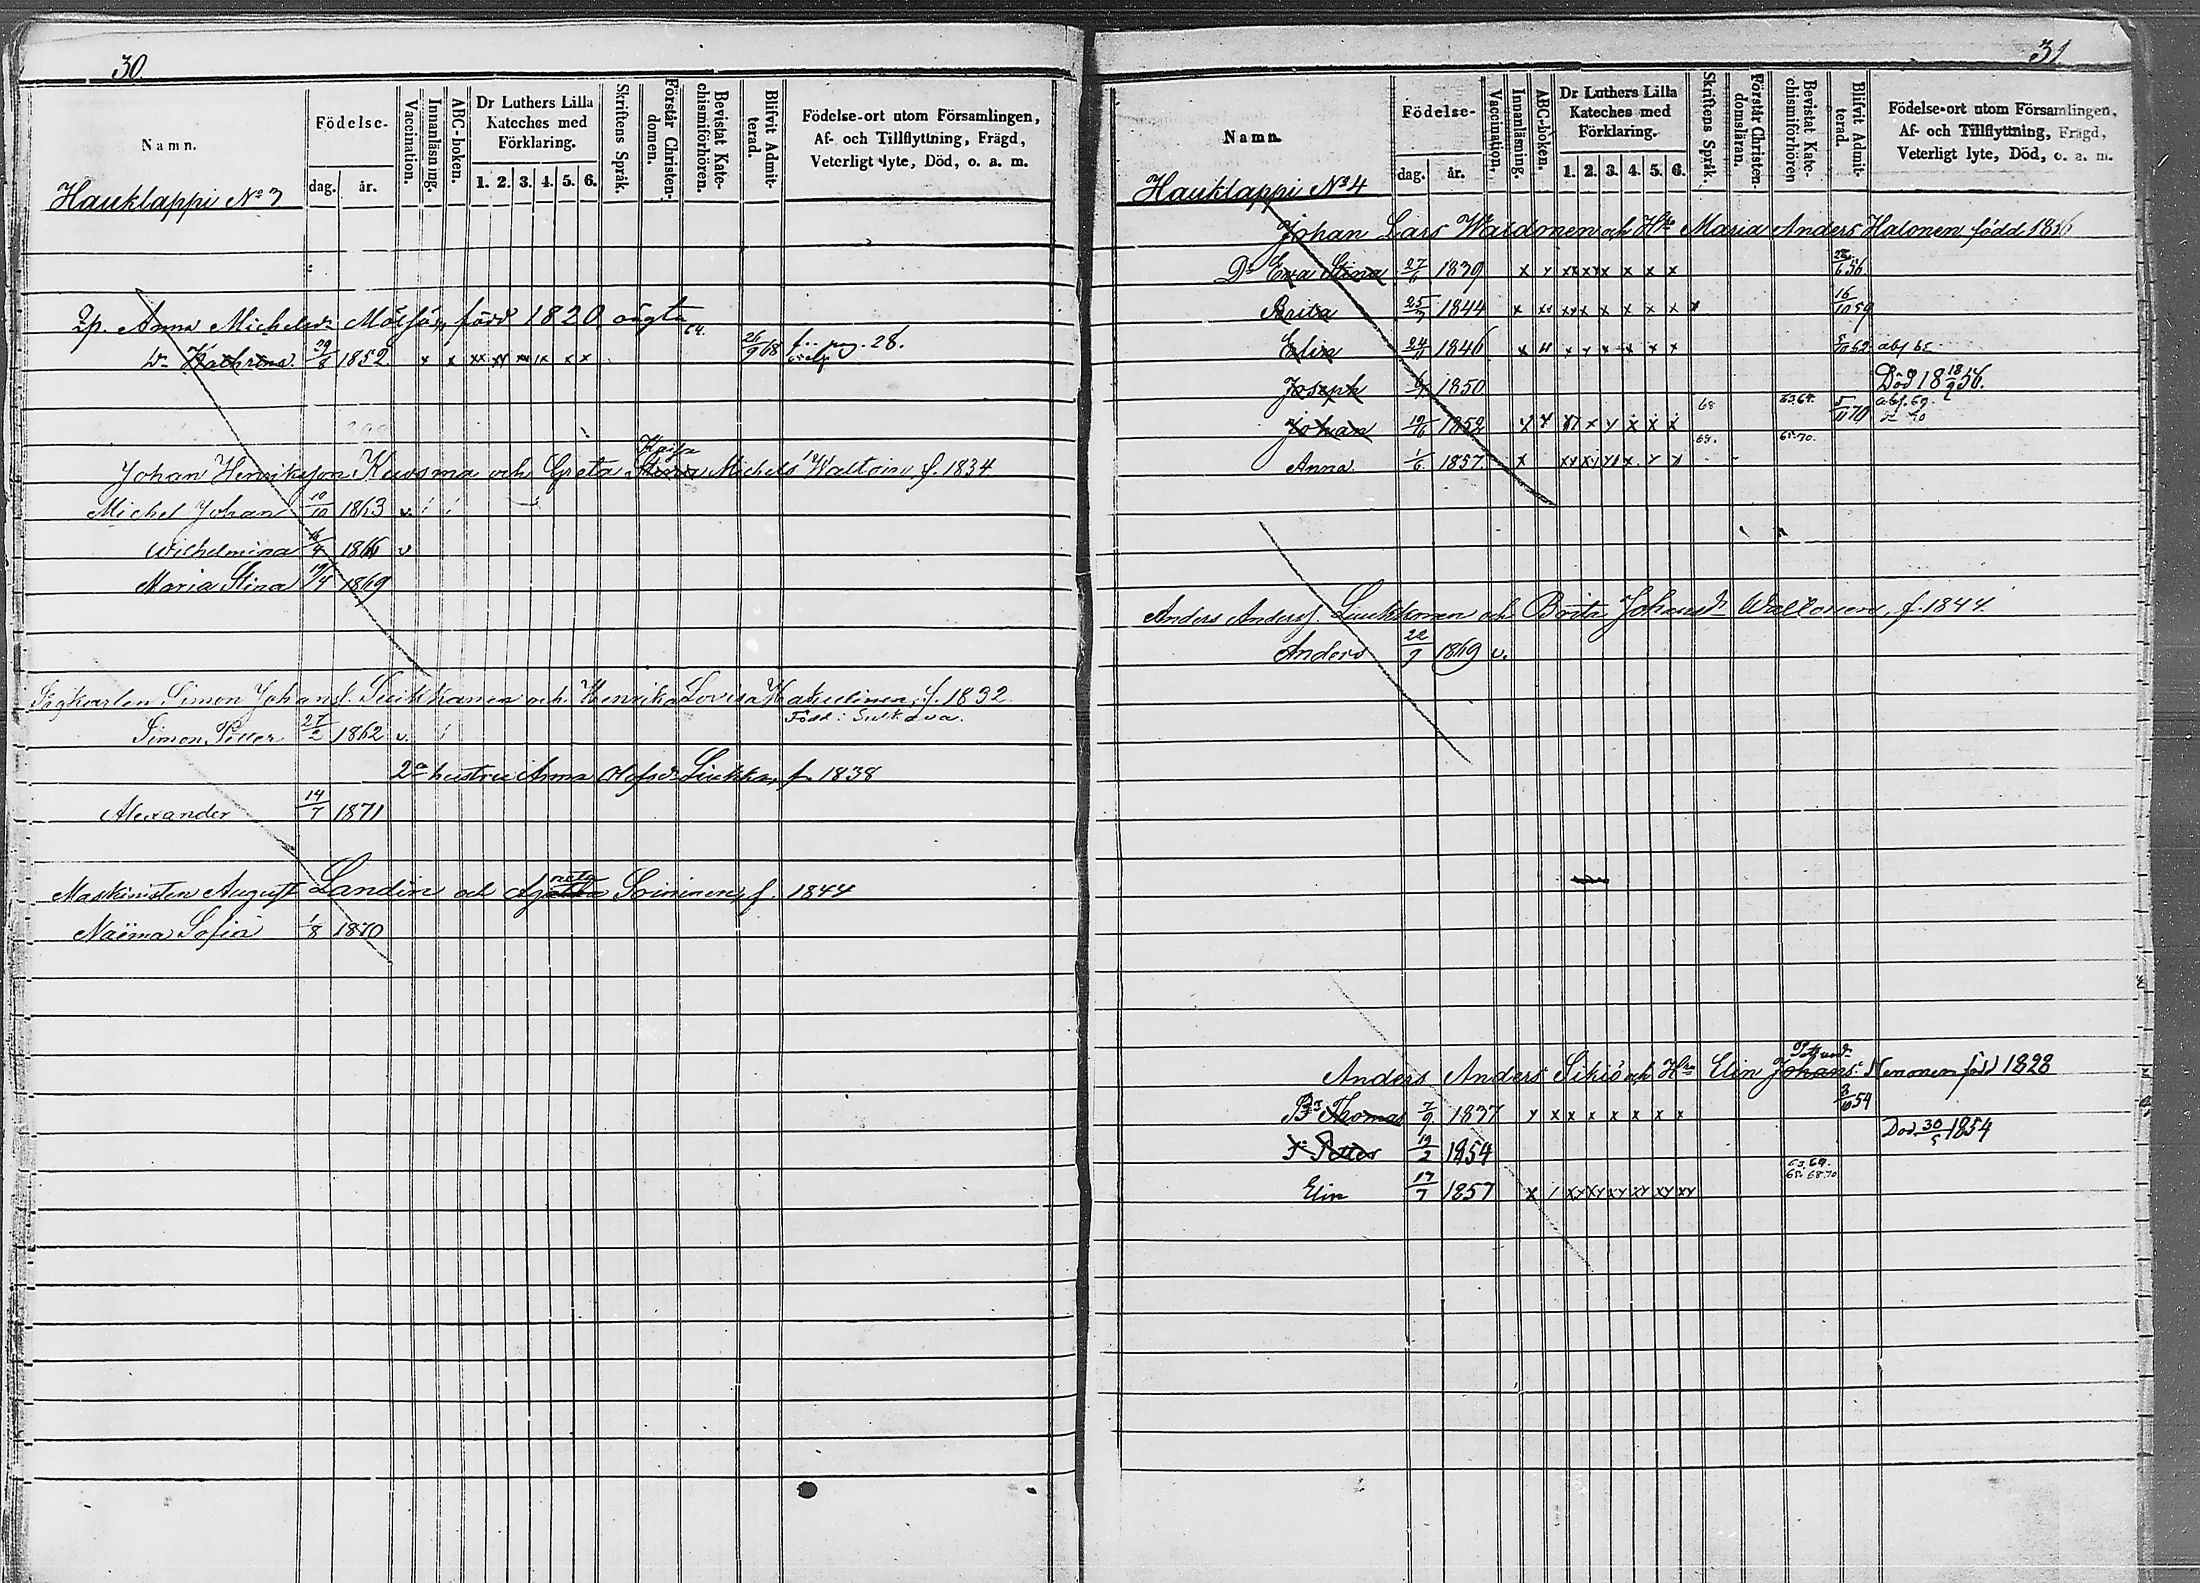 30
Namn.
Födelse-
dag.
år.
Vaccination.
Innanläsning.
ABC-boken.
Dr Luthers Lilla Kateches med Förklaring.
1. 2. 3. 4. 5. 6.
Skriftens Språk.
Förstår Christen-domen.
Bevistat Kate-chismiförhören.
Blifvit Admit-terad.
Födelse-ort utom Församlingen,
Af- och Tillflyttning, Frägd,
Veterligt lyte, Död, o. a. m.
Hauklappi No 3
Anna Michelsdr född 1820 oägta
Dr Kathrina 29/8 1852 x x xx xx xx x x x 64. 26/9 68 pag. 28.
Johan Henriksson Kuosma och Greta Stina Kaisa Michels f. 1834
Michel Johan 10/10 1863 v. / /
Wilhelmina 16/4 1866 v
Maria Stina 19/4 1869
Simon Johans. och Henrika Lovisa f. 1832.
Född i Sulkava.
Simon Petter 27/2 1862 v. /
2a hustru Anna Olofsdr Liukka, f. 1838
Alexander 14/7 1871
Maskinisten August Landin och Soininen, f. 1844
Naëma Sofia 1/8 1870
31
Namn.
Födelse-
dag.
år.
Vaccination.
Innanläsning.
ABC-boken.
Dr Luthers Lilla Kateches med Förklaring.
1. 2. 3. 4. 5. 6.
Skriftens Språk.
Förstår Christen-domsläran.
Bevistat Kate-chismiförhören
Blifvit Admit-terad.
Födelse-ort utom Församlingen,
Af- och Tillflyttning, Frägd,
Veterligt lyte, Död, o. a. m.
Hauklappi No 4
Johan Lars och Hu Maria Anders Halonen född 1816
Dr Eva Stina 27/11 1839 x x xx xx x x x x 56
Brita 1844 x xx xx x x x x x x 16/10 59
Elin 24/11 1846 x x x x x x x x 62
Joseph 1850 Död 18 18/9 56.
Johan 1852 68 63.64. 5/11 70
Anna 1/6 1857 x 69. 65.70.
Anders Anders. Luukkonen och Brita Johansdr f. 1844
Anders 22/9 1869 v.
Anders Anders Sikiö och Hu Elin Johans Nenonen född 1828
Br Thomas 7/9 1837 x x x x x x x x 54
Petter 19/2 1854 Död 30/5 1854
Elin 17/7 1857 x / xx xx xx xx xx xx 63.64. 65. 68.70